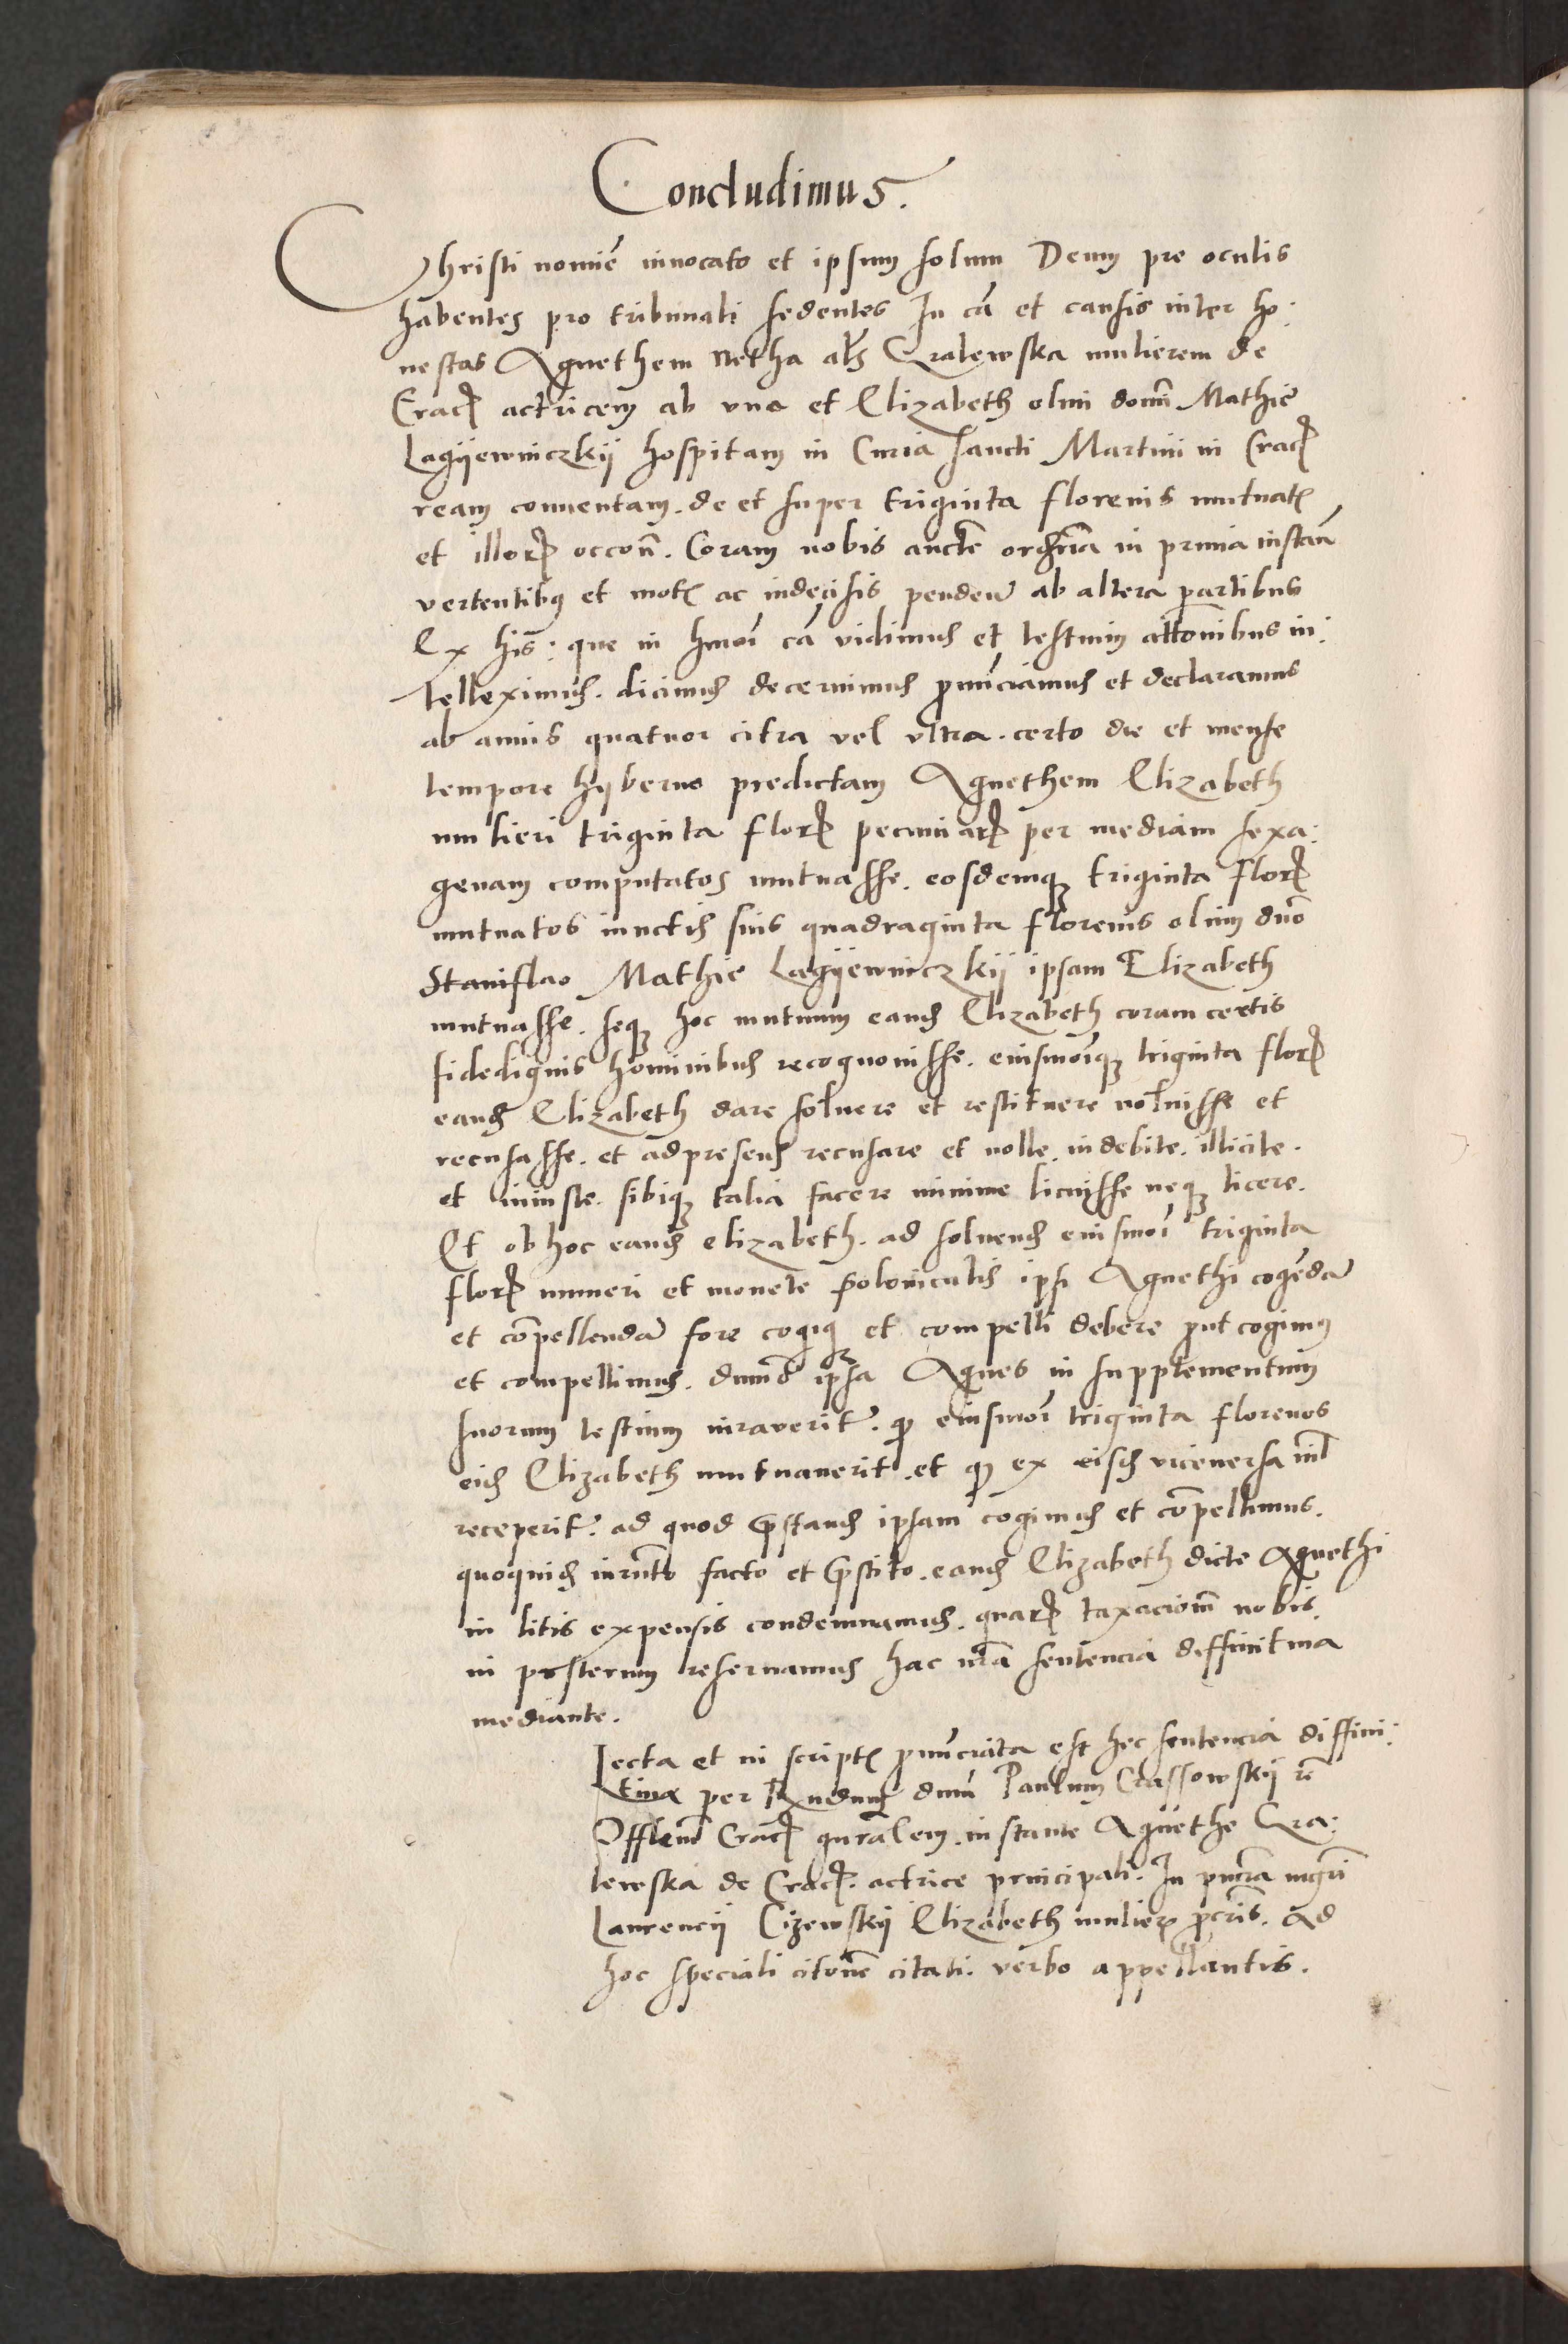 Concludimus.
Christi nomīe invocato et ipsum solum Deum pre oculis
habentes pro tribunali sedentes In cā et causis inter ho:
nestas Agnethem netha als Cralewska mulierem de
Crac actricem ab una et Elizabeth olim domī Mathie
Lagyewniczkij hospitam in Curia sancti Martini in Crac
ream conventam. de et super triginta florenis mutuat
et illor occoñ. Coram nobis aucte ordria in prima instañ
vertentibus et mot ac indecisis penden ab altera partibus
Ex his: que in hmoi cā vidimus et testium attonibus in:
telleximus. dicimus decernimus pronunciamus et declaramus
ab annis quatuor citra vel ultra. certo die et mense
tempore hyberno predictam Agnethem Elizabeth
mulieri triginta flor pecuniar per mediam sexa:
genam computatos mutuasse. eosdemque triginta flor
mutuatos iunctis suis quadraginta florenis olim dno
Stanislao Mathie Lagyewniczkij ipsam Elizabeth
mutuasse. seque hoc mutuum eand Elizabeth coram certis
fidedignis hominibus recognovisse. eiusmoique triginta flor
eand Elizabeth dare solvere et restituere noluisse et
recusasse. et ad presens recusare et nolle. indebite. illicite.
et iniuste. sibique talia facere minime licuisse neque licere.
Et ob hoc eand elizabeth. ad solvend eiusmoi triginta
flor numeri et monete polonicalis ipsi Agnethi cogendā
et cōpellendā fore cogique et compelli debere prout cogimus
et compellimus. dummō ipsa Agnes in supplementum
suorum testium iuraverit. quod eiusmoi triginta florenos
eid Elizabeth mutuaverit. et quod ex eisd viceversa nil
receperit. ad quod prestand ipsam cogimus et cōpellimus.
quoquid iurnto facto et prestito. eand Elizabeth dicte Agnethi
in litis expensis condemnamus. quar taxacionē nobis
in posterum reservamus hac nrā sentencia diffinitiva
mediante.
Lecta et in script pronunciata est hec sentencia diffini:
tiva per Rndum dnm Paulum Crassowskij
Offlem Crac gnralem. instante Agnethe Cra:
lewska de Crac. actrice principali. In pntia mgri
Laurencij Cizewskij Elizabeth mulier procris. Ad
hoc speciali citone citati. verbo appellantis.